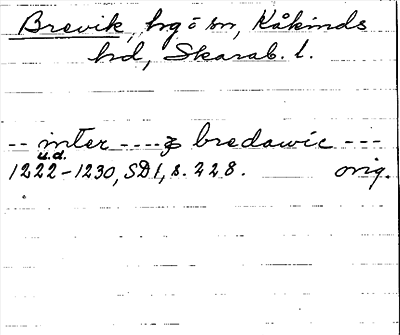 Brevik, hg o sn, Kåkinds
hd, Skarab. l.
-- inter ---- & bredawic ---
u.d.
1222-1230, SD 1, s. 228. orig.